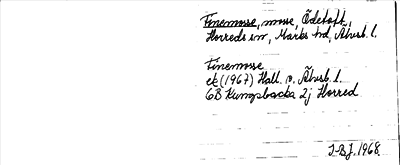 Finemosse, mosse, Ödetoft,
Horreds sn, Marks hd, Älvsb. l.
Finemosse
ek (1967) Hall. o. Älvsb. l.
6B Kungsbacka 2j Horred
I-B J. 1968.